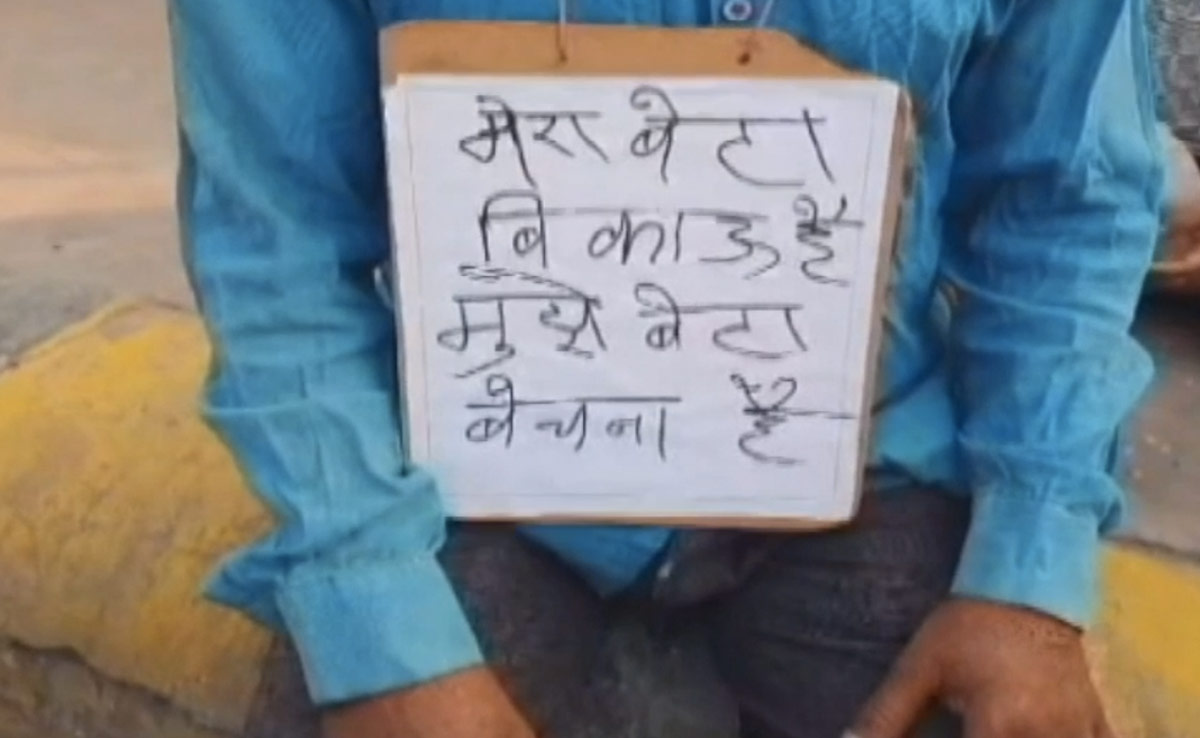 मेरा बेटा
बिकाऊ है
मुझे बेटा
बेचना है